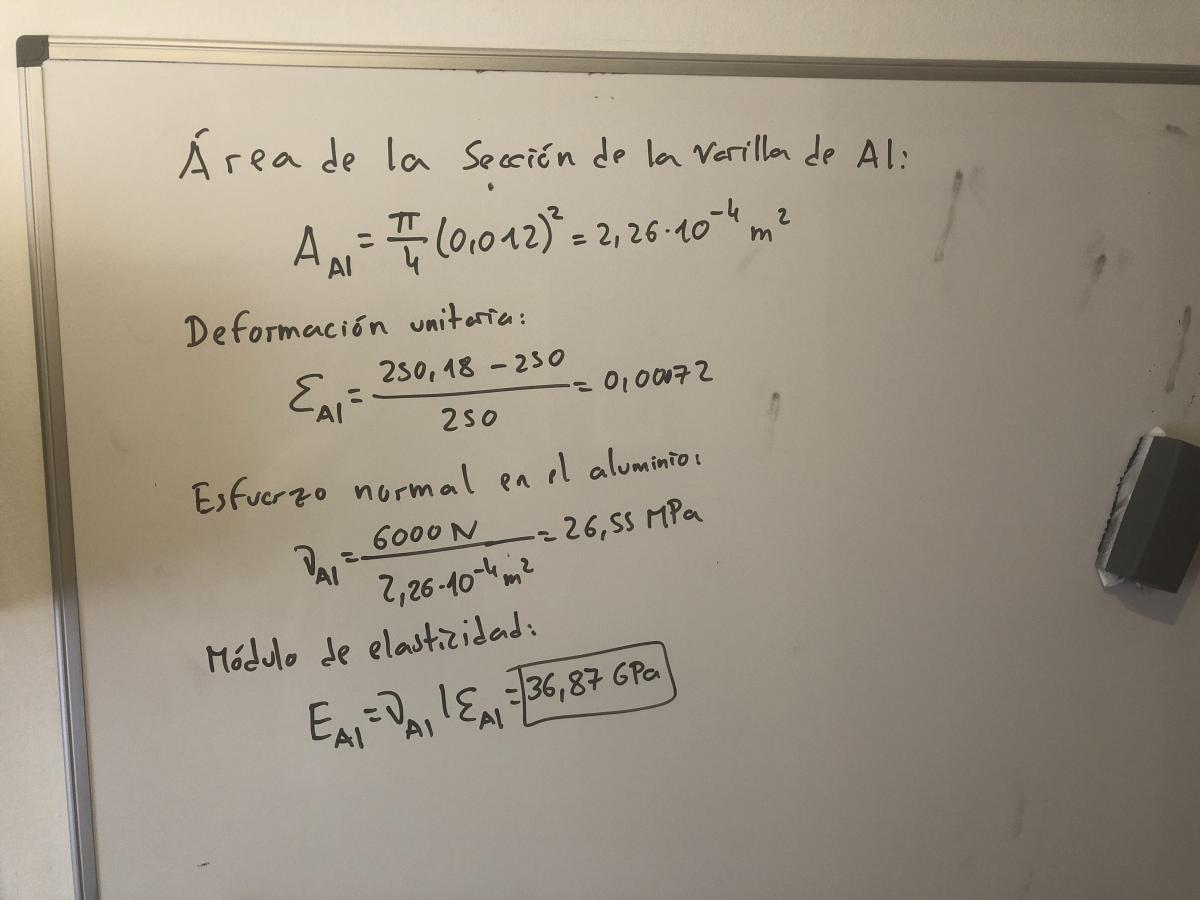 Área de la Sección de la varilla de Al:
A_Al = π/4 (0,012)² = 2,26·10⁻⁴ m²
Deformación unitaria:
Ɛ_Al = (250,18 − 250)/250 = 0,00072
Esfuerzo normal en el aluminio:
σ_Al = 6000 N/(2,26·10⁻⁴ m²) = 26,55 MPa
Módulo de elasticidad:
E_Al = σ_Al / Ɛ_Al = 36,87 GPa